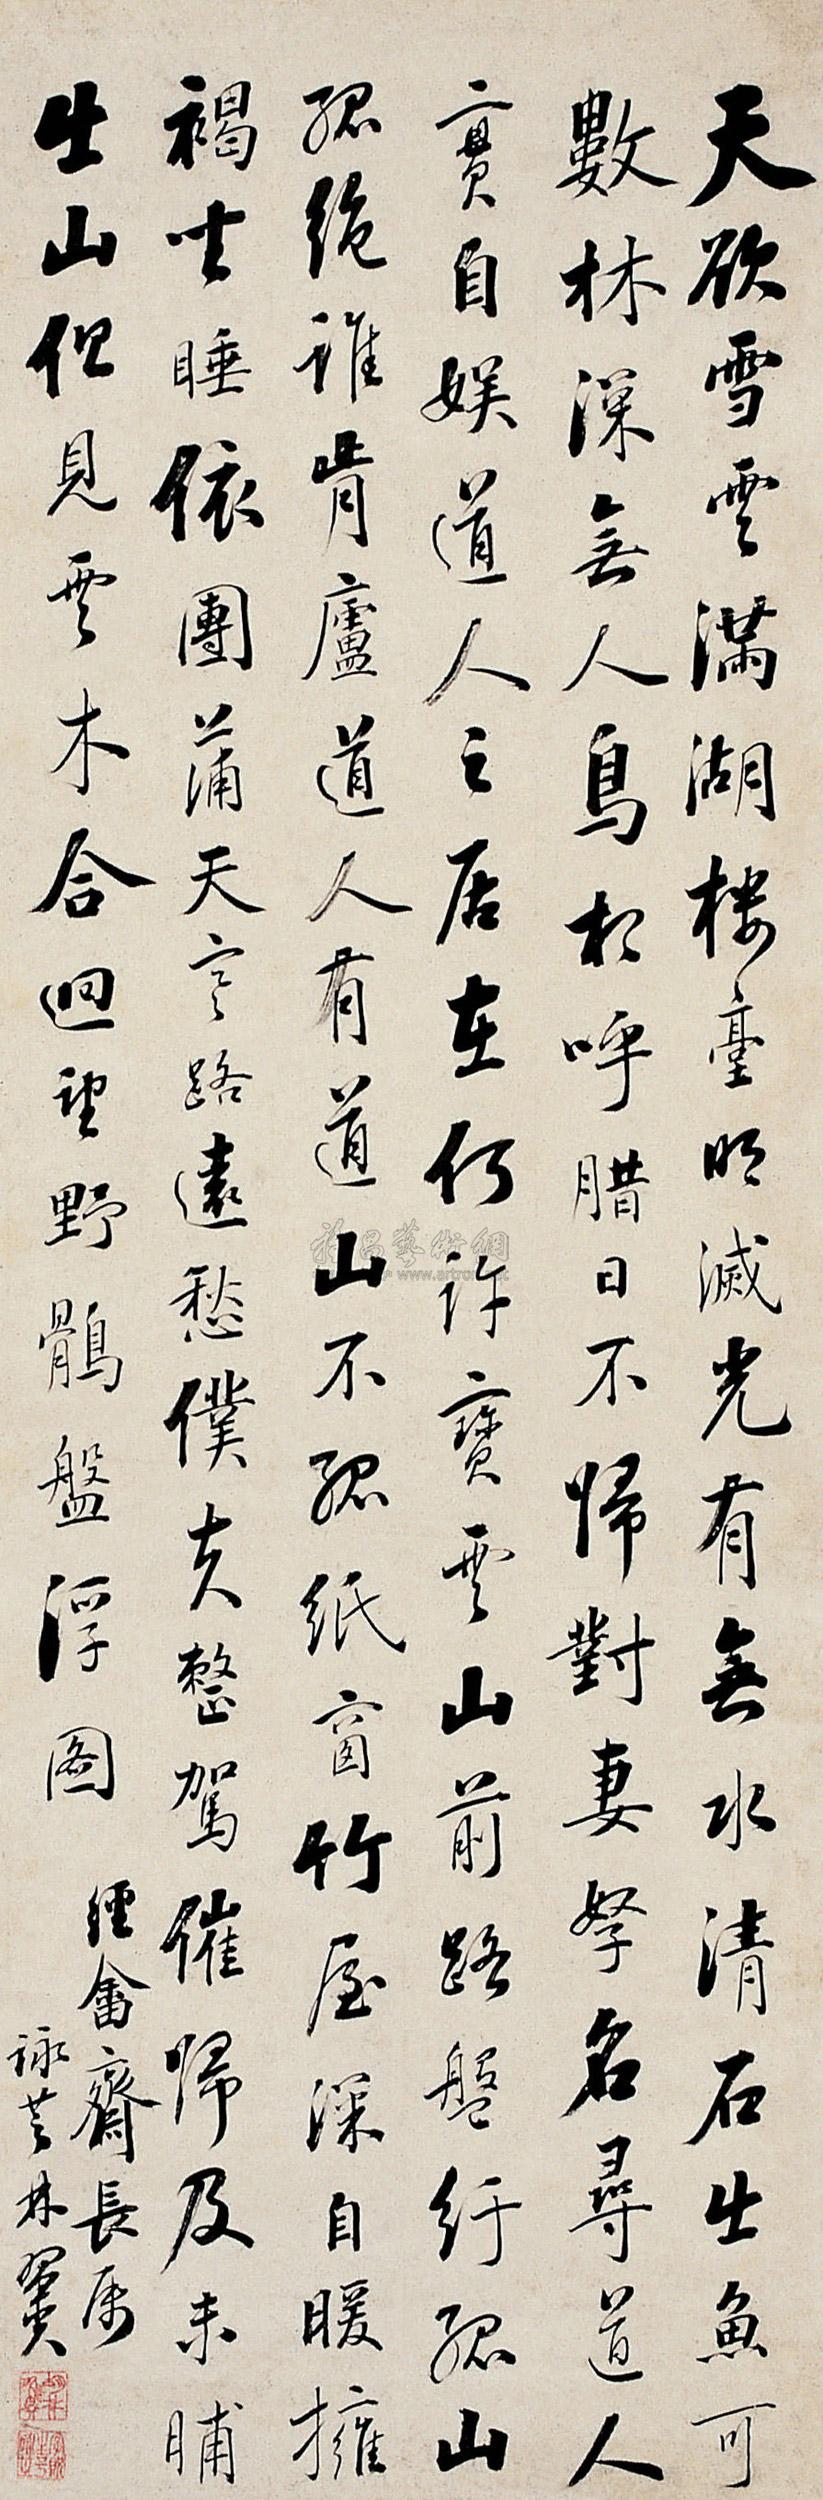 天欲雪雲满湖樓臺明滅光有無水清石出魚可
數林深無人鳥相呼腊日不歸對妻孥名尋道人
實自娛道人之居在何許寶雲山前路盤紆孤山
孤絶誰肯廬道人有道山不孤紙窗竹屋深自暖擁
褐坐睡依團蒲天寒路遠愁僕夫整駕催歸及未晡
出山但見雲木合迴望野鶻盤浮圖
經畬齋長屬
詠芝林翼